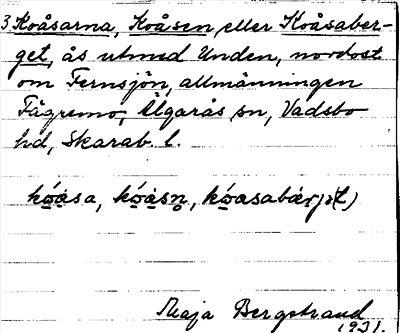 3 Koåsarna, Koåsen eller Koåsaber-
get, ås utmed Unden, nordost
om Fernsjön, allmänningen
Fägremo, Älgarås sn, Vadsbo
hd, Skarab. l.
kóàsa, kóàsn̥, kóasabárjə(t)
Maja Bergstrand
1931.